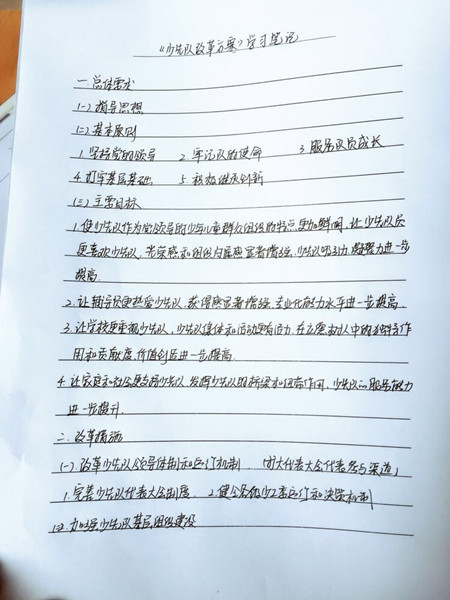 《少先队改革方案》学习笔记
一.总体要求
(一)指导思想
(二)基本原则
1.坚持党的领导 2.牢记队的使命 3.服务队员成长
4.打牢基层基础 5.积极继承创新
(三)主要目标
1.使少先队作为党领导的少年儿童群众组织的特点更加鲜明,让少先队员
更喜欢少先队,光荣感和组织归属感显著增强,少先队吸引力凝聚力进一步
提高.
2.让辅导员更热爱少先队,获得感显著增强,专业化能力水平进一步提高.
3.让学校更重视少先队,少先队集体和活动更有活力,在立德树人中的独特作
用和贡献度、价值创造进一步提高.
4.让家庭和社会更支持少先队,发挥少先队的桥梁和纽带作用,少先队的服务能力
进一步提升.
二.改革措施
(一)改革少先队领导体制和运行机制.(扩大代表大会代表参与渠道)
1.完善少先队代表大会制度. 2.健全各级少工委运行和决策机制
(二)加强少先队基层组织建设